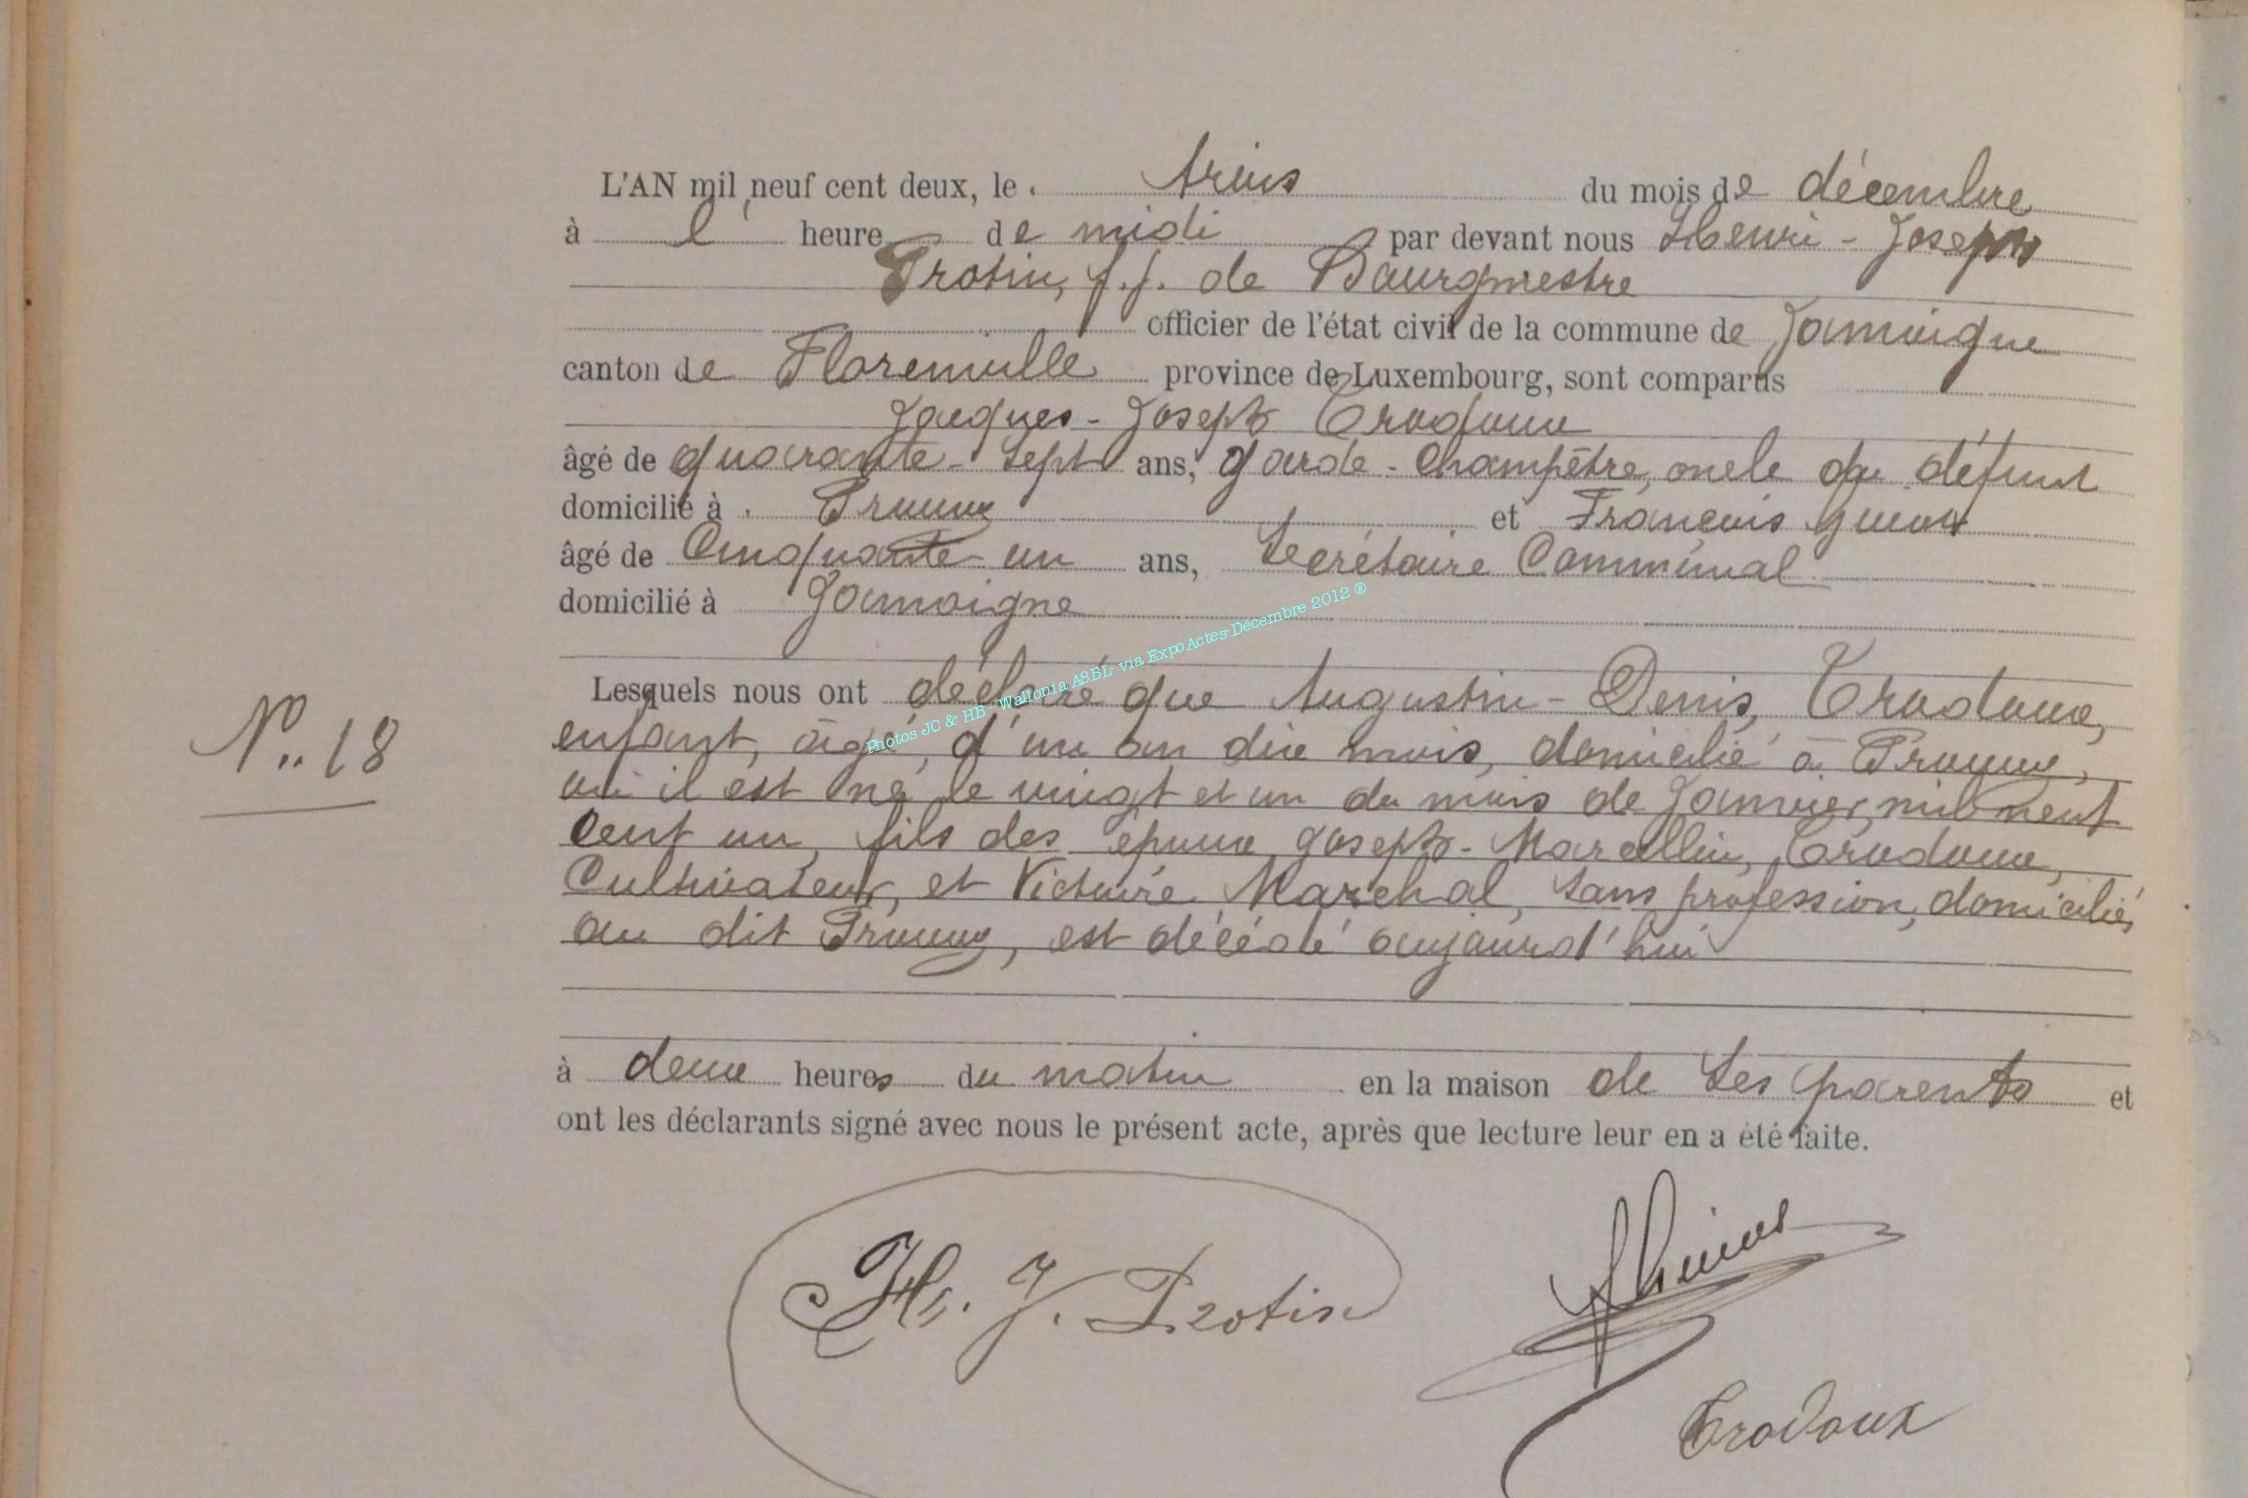 L'AN mil neuf cent deux, le trois du mois de décembre
à l' heure de midi par devant nous Henri - Joseph
Protin, f.f. de Bourgmestre
officier de l'état civil de la commune de Jamoigne
canton de Florenville province de Luxembourg, sont comparus
Jacques - Joseph Crodoux
âgé de quarante - sept ans, garde - champêtre, oncle du défunt
domicilié à Prouvy et François
âgé de Cinquante - un ans, Secrétaire Communal
domicilié à Jamoigne
Lesquels nous ont déclaré que Augustin - Denis, Crodoux,
enfant, âgé, d'un an dix mois, domicilié à Prouvy,
où il est né le vingt et un du mois de Janvier mil neuf
N° 18
cent un, fils des époux Joseph - Marcellin, Crodoux,
Cultivateur, et Victoire Marchal, sans profession, domiciliés
au dit Prouvy, est décédé aujourd'hui
à deux heures du matin en la maison de ses parents et
ont les déclarants signé avec nous le présent acte, après que lecture leur en a été faite.
H. J. Protin
Crodoux
Photos JC & HB - Wallonia ASBL - via ExpoActes-Décembre 2012 ®